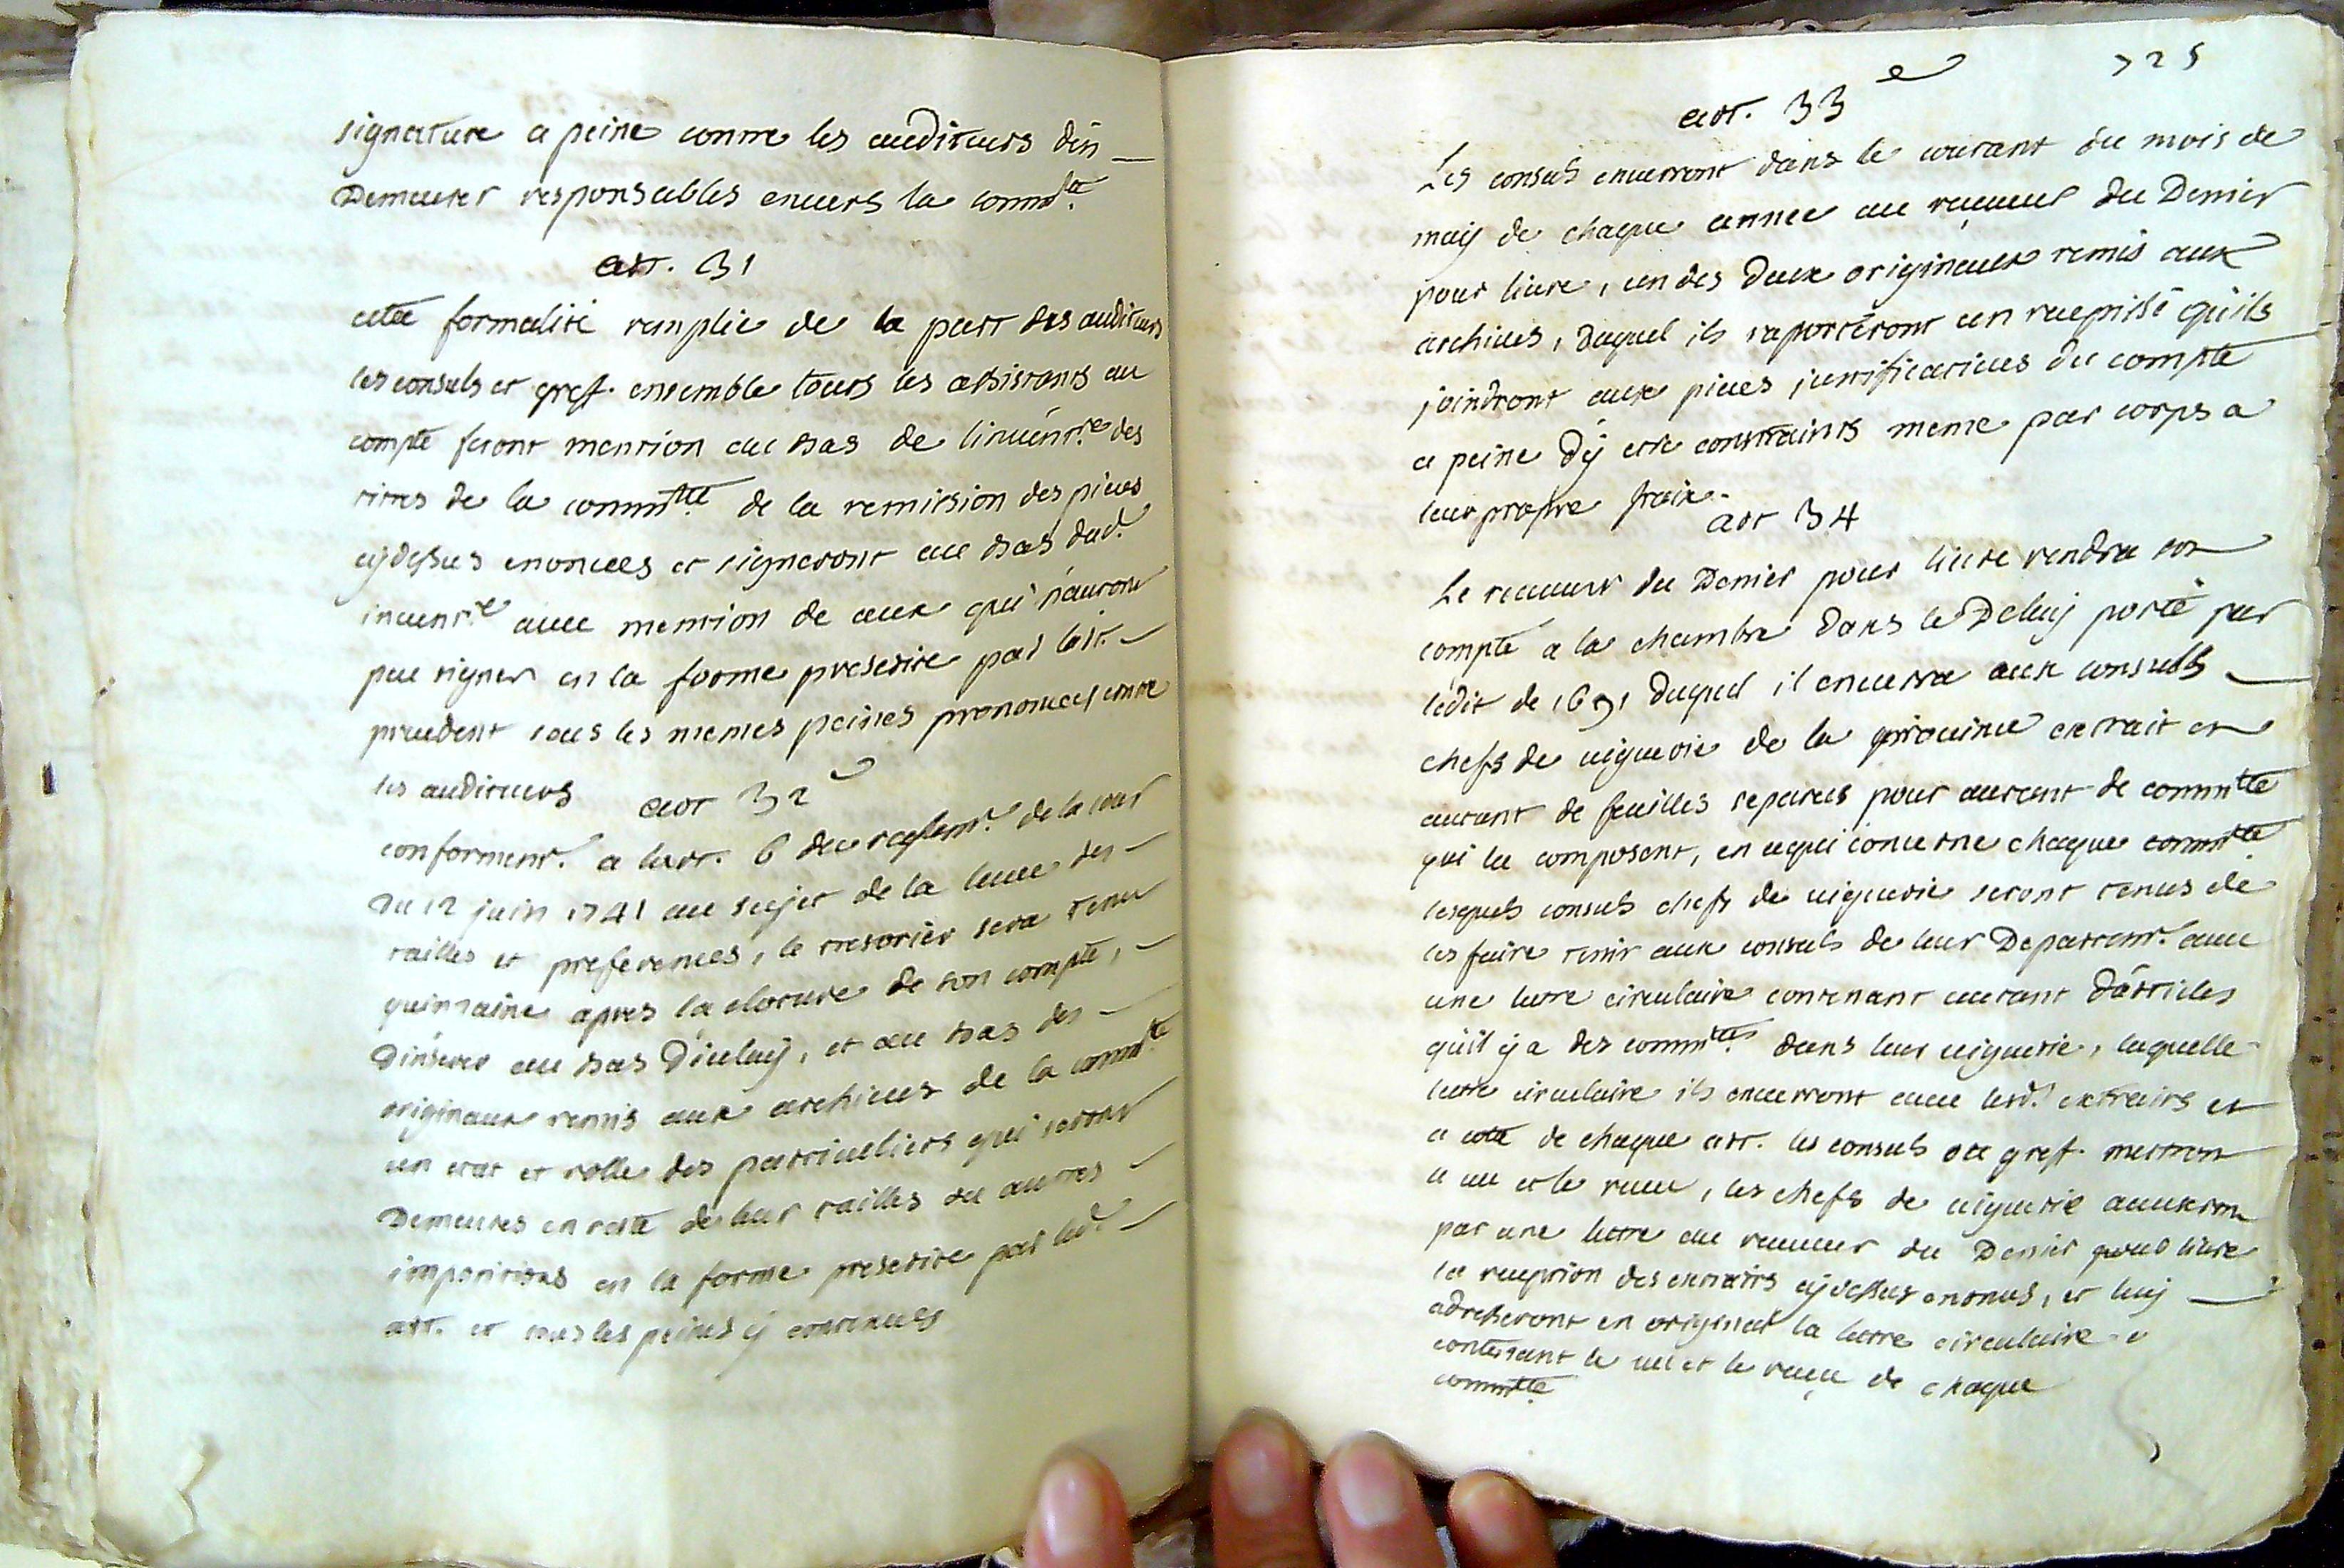 signature a peine contre les auditeurs d'en
Demeurer responsables envers la comm.té
art. 31
cette formalité remplie de la part des auditeurs
les consuls et gref. ensemble touts les assistants au
compte feront mention au bas de l'inventre. des
titres de la commtté. de la remission des pieces
cy dessus enoncees et signeront au bas dud.
inventre. avec mention de ceux qui n'auront
peu signer en la forme prescrite par l'art.
precedent sous les memes peines prononcees contre
les auditeurs
art 32e
conforment. a l'art. 6 du reglemt. de la cour
Du 12 juin 1741 au sujet de la levee des
tailles et preferences, le tresorier sera tenu
quinzaine apres la cloture de son compte,
D'inserer au bas D'iceluy, et au bas des
originaux remis aux archives de la commté
un etat et rolle des particuliers qui seront
Demeures en reste de leur tailles ou autres
impositions en la forme prescrite par led.
art. et sous les peines y contenues
725
art. 33e
Les consuls enverront dans le courant du mois de
may de chaque annee au receveur du Denier
pour livre, un des Deux originaux remis aux
archives, duquel ils raporteront un recepissé qu'ils
joindront aux pieces justificatives du compte
a peine D'y etre constraints meme par corps a
leur propre fraix.
art 34
Le receveur du Denier pour livre rendra son
compte a la chambre dans le Delay porté par
l'edit de 1691 duquel il enverra aux consuls
chefs de viguerie de la province extrait en
autant de feuilles separees pour autant de commtté
qui la composent, en ce qui concerne chaque commtté
lesquels consuls chefs de viguerie seront tenus de
les faire tenir aux consuls de leur Departemt. avec
une lettre circulaire contenant autant d'articles
qu'il y a des commttés. dans leur viguerie, laquelle
lettre circulaire ils enverront avec lesd. extraits et
a coté de chaque art. les consuls ou gref. mettront
a vu et le receu, les chefs de viguerie accuseront
par une lettre au receveur du Denier pour livre
la reception des extraits cy dessus enoncés, et luy
adresseront en original la lettre circulaire
contenant le vu et le reçu de chaque
commtté.